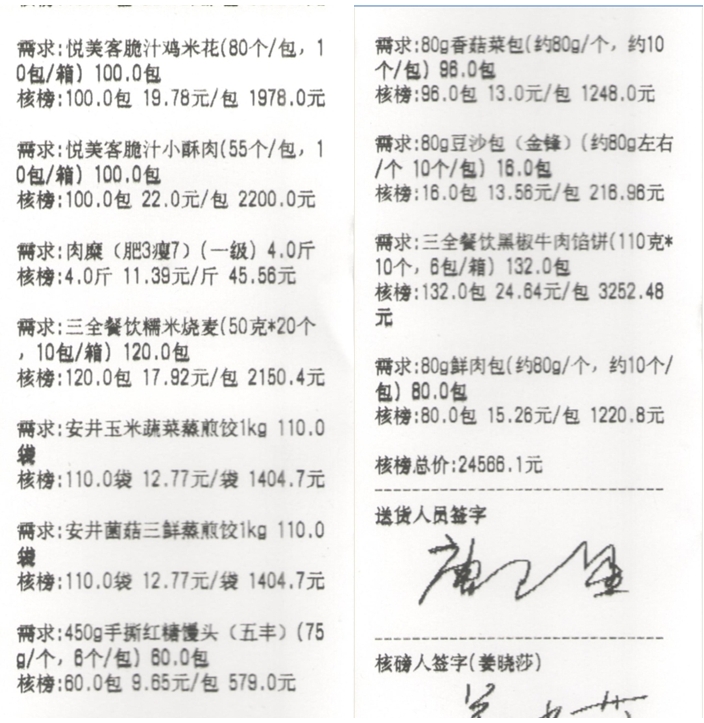 需求:悦美客脆汁鸡米花(80个/包，1
0包/箱) 100.0包
核榜:100.0包 19.78元/包 1978.0元
需求:悦美客脆汁小酥肉(55个/包，1
0包/箱) 100.0包
核榜:100.0包 22.0元/包 2200.0元
需求:肉糜（肥3瘦7）(一级) 4.0斤
核榜:4.0斤 11.39元/斤 45.56元
需求:三全餐饮糯米烧麦(50克*20个
，10包/箱) 120.0包
核榜:120.0包 17.92元/包 2150.4元
需求:安井玉米蔬菜蒸煎饺1kg 110.0
袋
核榜:110.0袋 12.77元/袋 1404.7元
需求:安井菌菇三鲜蒸煎饺1kg 110.0
袋
核榜:110.0袋 12.77元/袋 1404.7元
需求:450g手撕红糖馒头（五丰）(75
g/个，6个/包) 60.0包
核榜:60.0包 9.65元/包 579.0元
需求:80g香菇菜包(约80g/个，约10
个/包) 96.0包
核榜:96.0包 13.0元/包 1248.0元
需求:80g豆沙包（金锋）(约80g左右
/个 10个/包) 16.0包
核榜:16.0包 13.56元/包 216.96元
需求:三全餐饮黑椒牛肉馅饼(110克*
10个，6包/箱) 132.0包
核榜:132.0包 24.64元/包 3252.48
元
需求:80g鲜肉包(约80g/个，约10个/
包) 80.0包
核榜:80.0包 15.26元/包 1220.8元
核榜总价:24566.1元
送货人员签字
核磅人签字(姜晓莎)